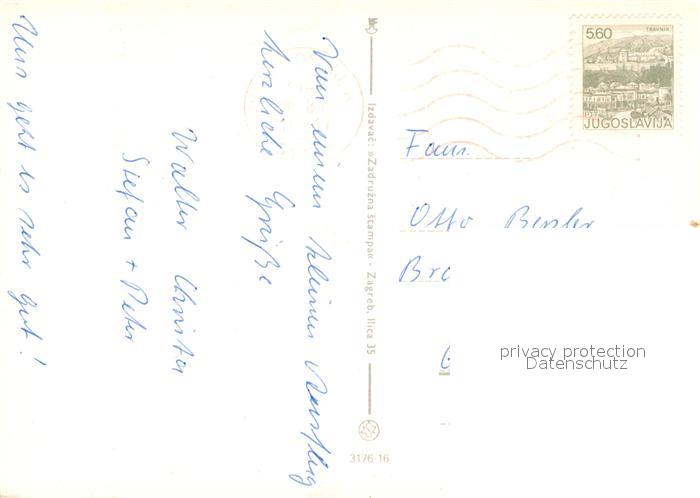 Von einem kleinen Ausflug
herzliche Grüße
Walter Christa
Stefan + Peter
Uns geht es sehr gut!
Izdavač: »Zadružna štampa« - Zagreb, Ilica 35
3176-16
5,60
TRAVNIK
PTT
JUGOSLAVIJA
Fam.
Otto
privacy protection
Datenschutz